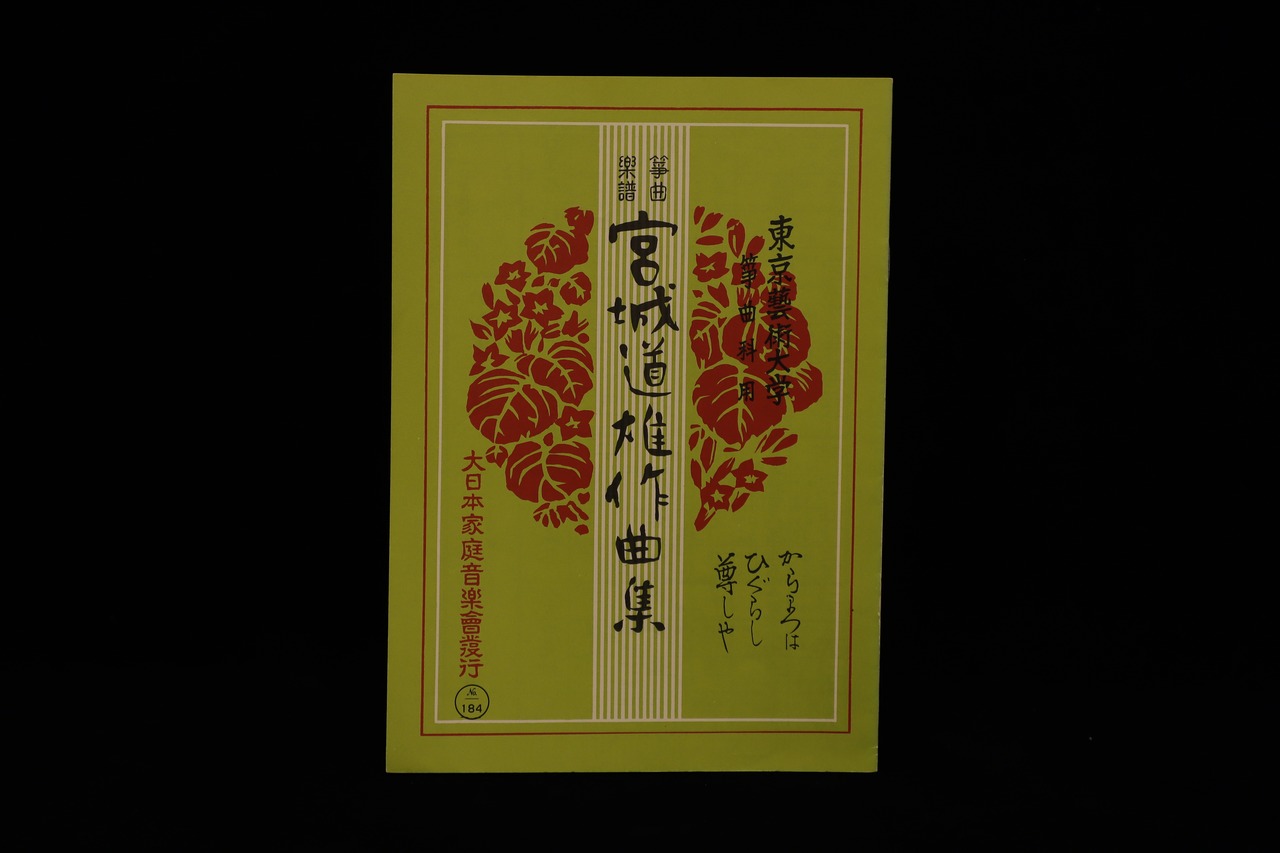 東京藝術大学
箏曲科用
からまつは
ひぐらし
尊しや
箏曲
楽譜
宮城道雄作曲集
大日本家庭音楽會發行
No.
184